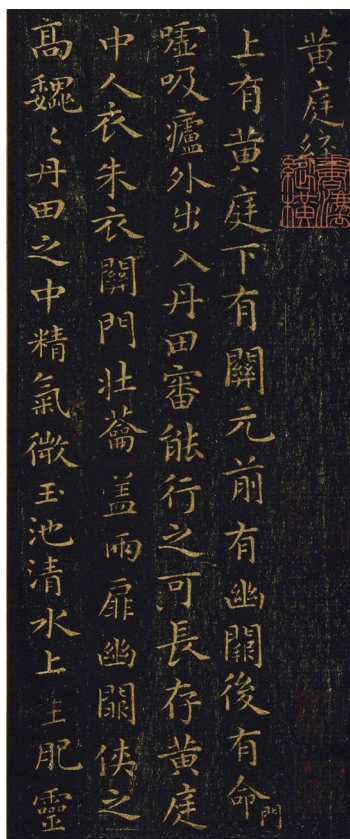 黄庭経
書法縱橫
上有黄庭下有關元前有幽闕後有命門
嘘吸廬外出入丹田審能行之可長存黄庭
中人衣朱衣關門壮籥盖兩扉幽闕侠之
高魏〻丹田之中精氣微玉池清水上生肥靈